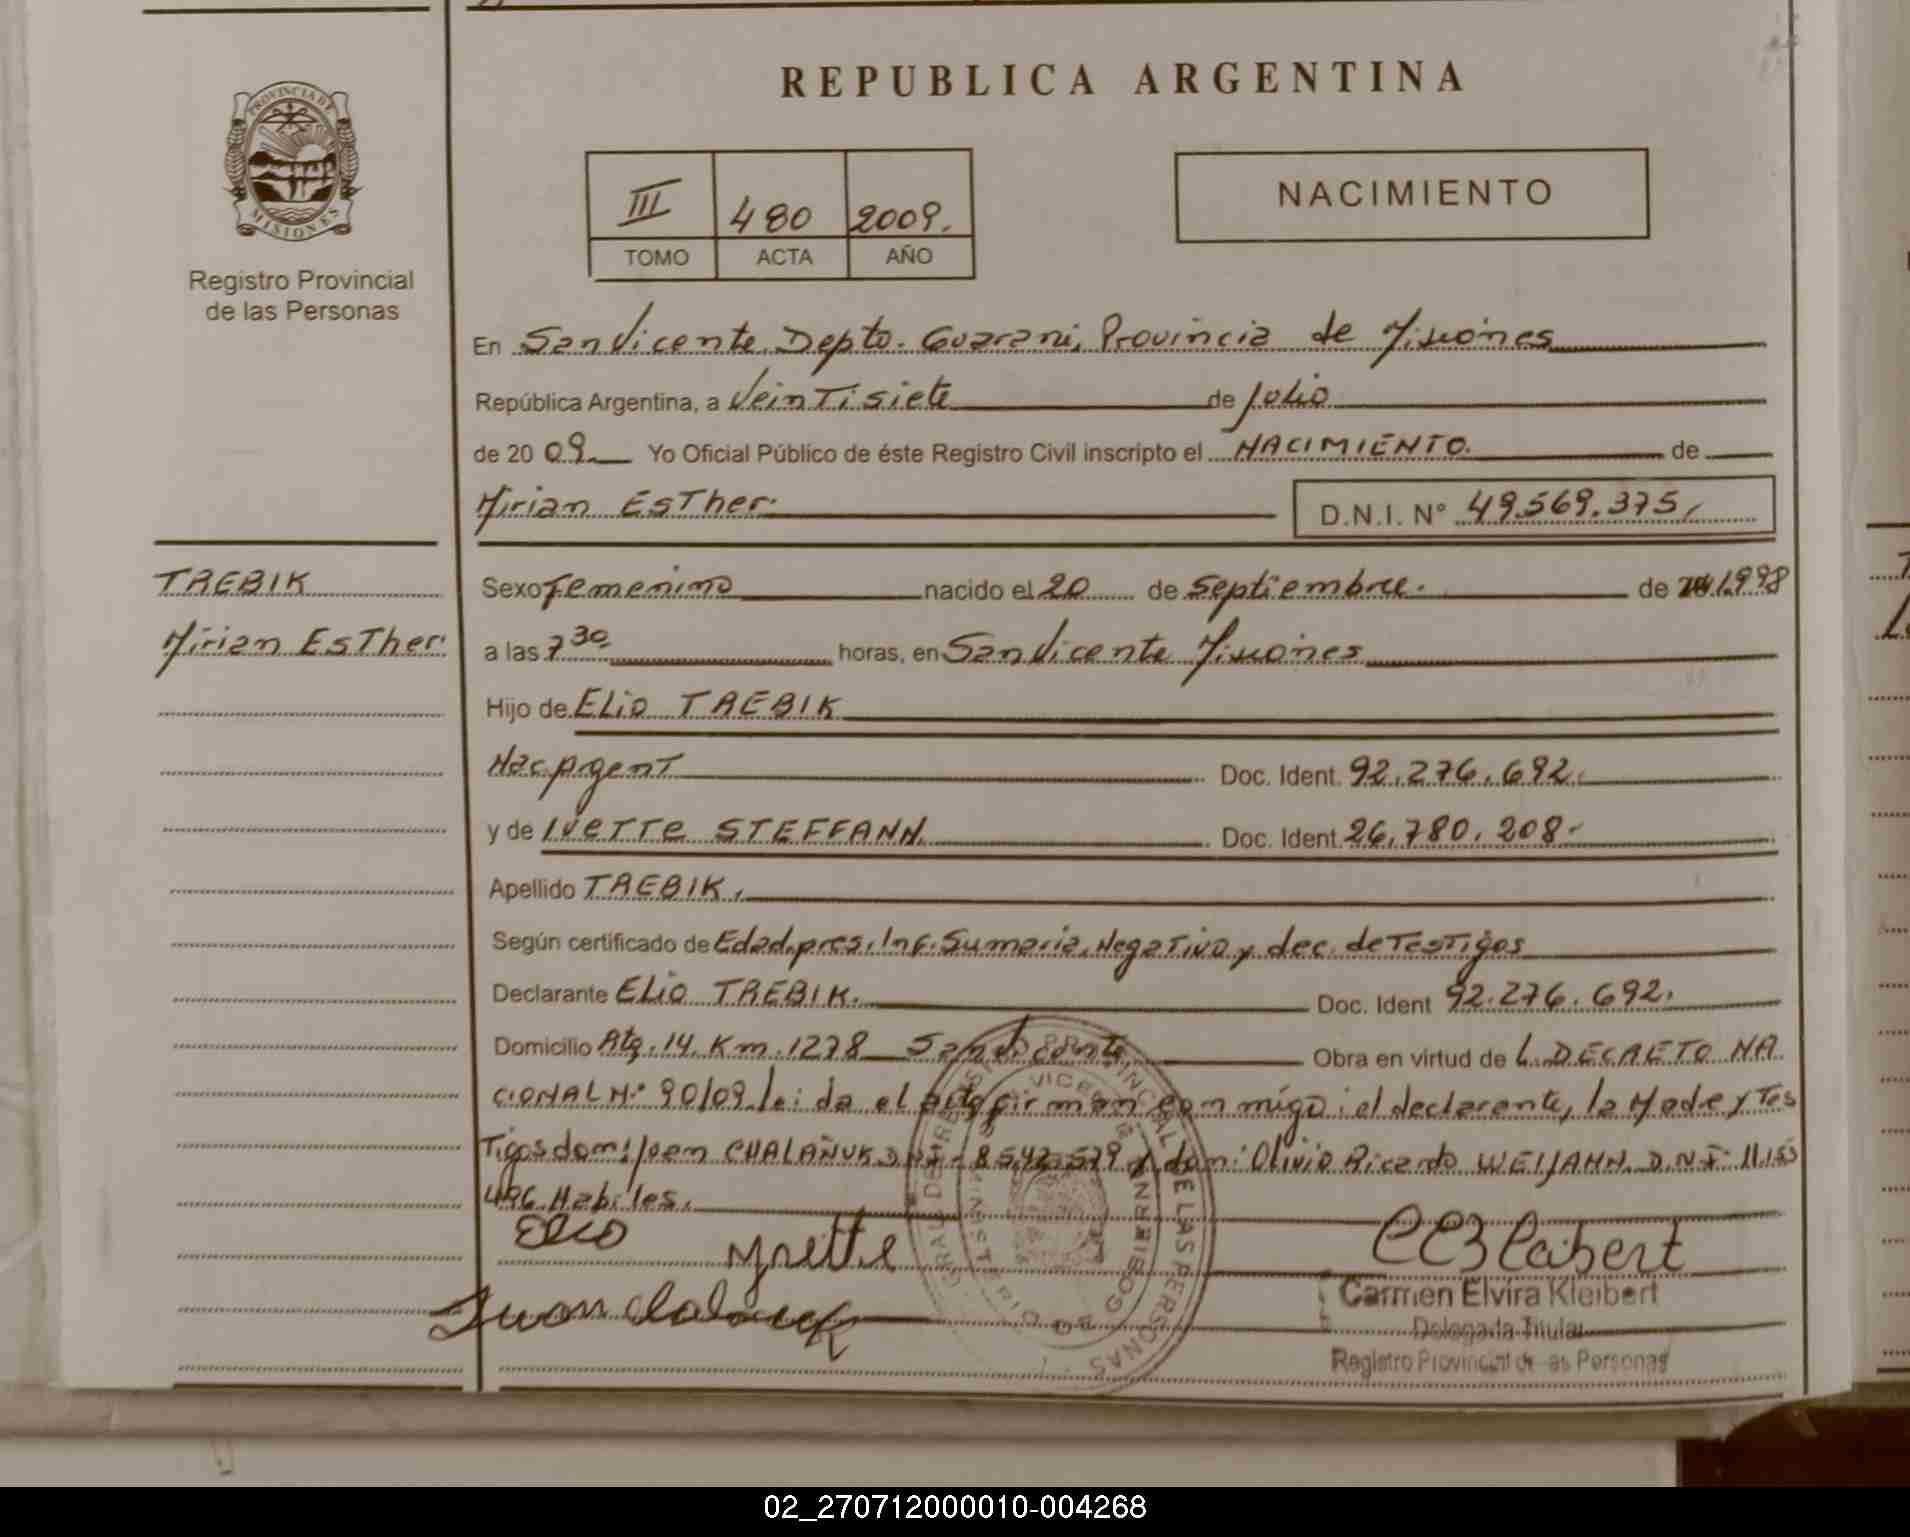 REPUBLICA ARGENTINA
PROVINCIA DE
MISIONES
Registro Provincial
de las Personas
III 480 2009.
TOMO ACTA AÑO
NACIMIENTO
En San Vicente Depto. Guarani, Provincia de Misiones
República Argentina, a Veintisiete de Julio
de 2009 Yo Oficial Público de éste Registro Civil inscripto el NACIMIENTO. de
Mirian EsTher. D.N.I. N° 49.569.375
TREBIK
Mirian EsTher.
Sexo Femenino nacido el 20 de Septiembre. de 1998
a las 7 30 horas, en San Vicente Misiones
Hijo de ELio TREBIK
Nac Argent Doc. Ident. 92.276.692.
y de IveTTe STEFFANN. Doc. Ident. 26.780.208-
Apellido TREBIK.
Según certificado de Edad.pres.Inf.Sumaria,NegaTivo y dec. de TesTigos
Declarante ELio TREBIK. Doc. Ident 92.276.692.
Domicilio Rta.14.Km.1278 San Vicente Obra en virtud de L. DECRETO NA
CIONAL N° 90/09 leida el acta firman conmigo: el declarante, la Madre y Tes
Tigos don: Juan CHALAÑUK D.N.I- 8.542.579 y don: Olivio Ricardo WEIJAHN D.N.I- 11.155
496 Habiles.
Elio Yvette
Juan
Carmen Elvira Kleibert
Delegada Titular
Registro Provincial de las Personas
02_270712000010-004268